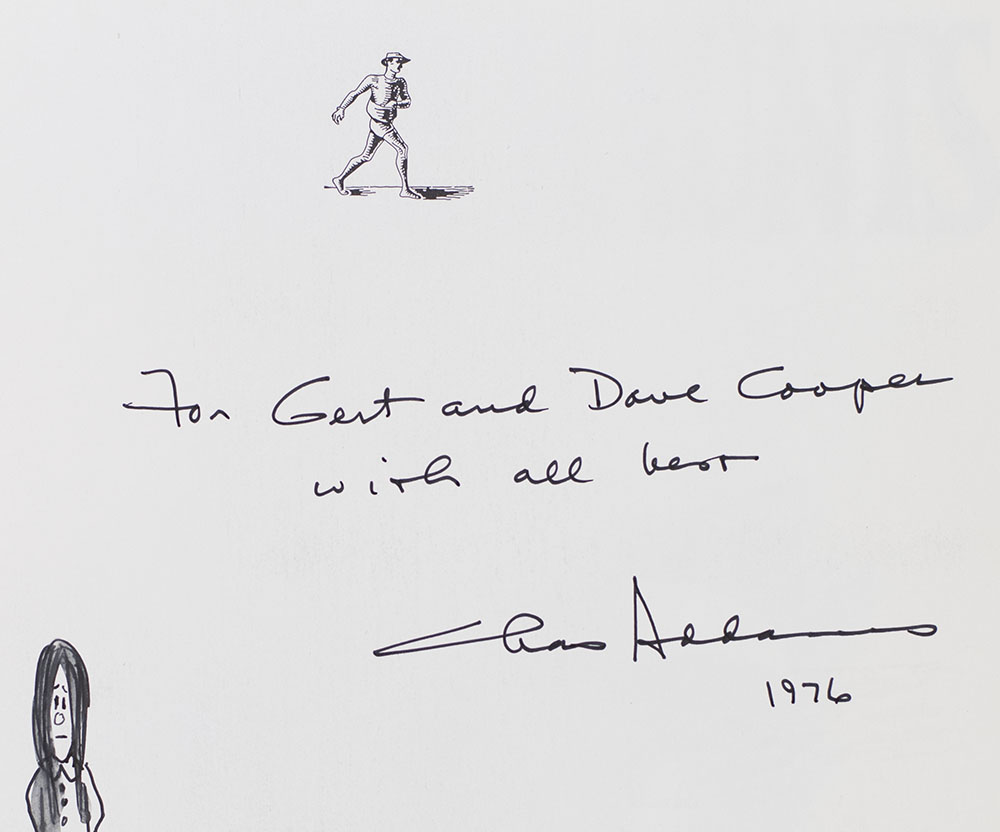 For Gert and Dave Cooper
with all best
Chas Addams
1976